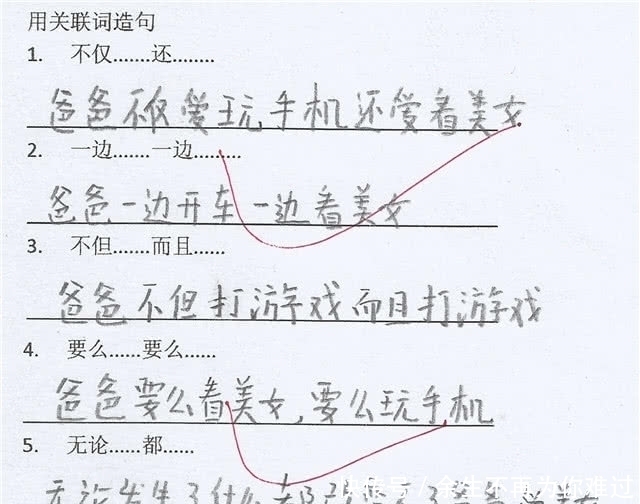 用关联词造句
1. 不仅……还……
爸爸不仅爱玩手机还爱看美女.
2. 一边……一边……
爸爸一边开车一边看美女
3. 不但……而且……
爸爸不但打游戏而且打游戏
4. 要么……要么……
爸爸要么看美女,要么玩手机
5. 无论……都……
无论发生了什么都
快传号 / 余生不再为你难过